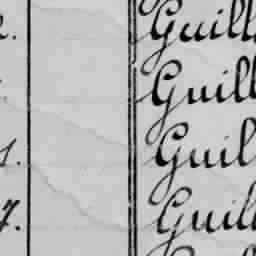 Guill
Guill
1. Guil
7. Guill